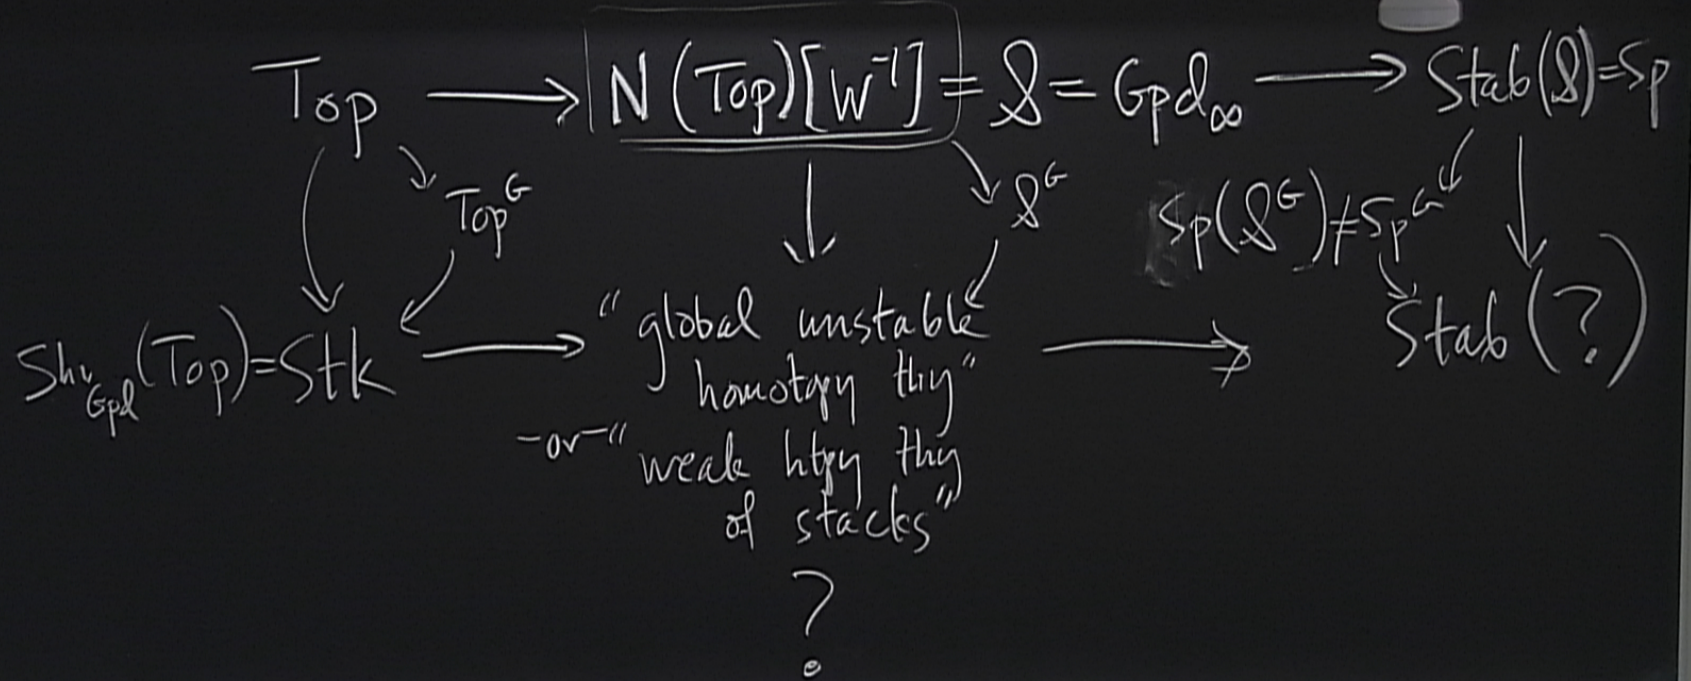 Top → N(Top)[W⁻¹] = 𝒮 = Gpd∞ → Stab(𝒮)=Sp
Top^G 𝒮^G Sp(𝒮^G)≠Sp^G
Shv_Gpd(Top)=Stk → "global unstable → Stab(?)
homotopy thy"
-or- "weak htpy thy
of stacks"
?